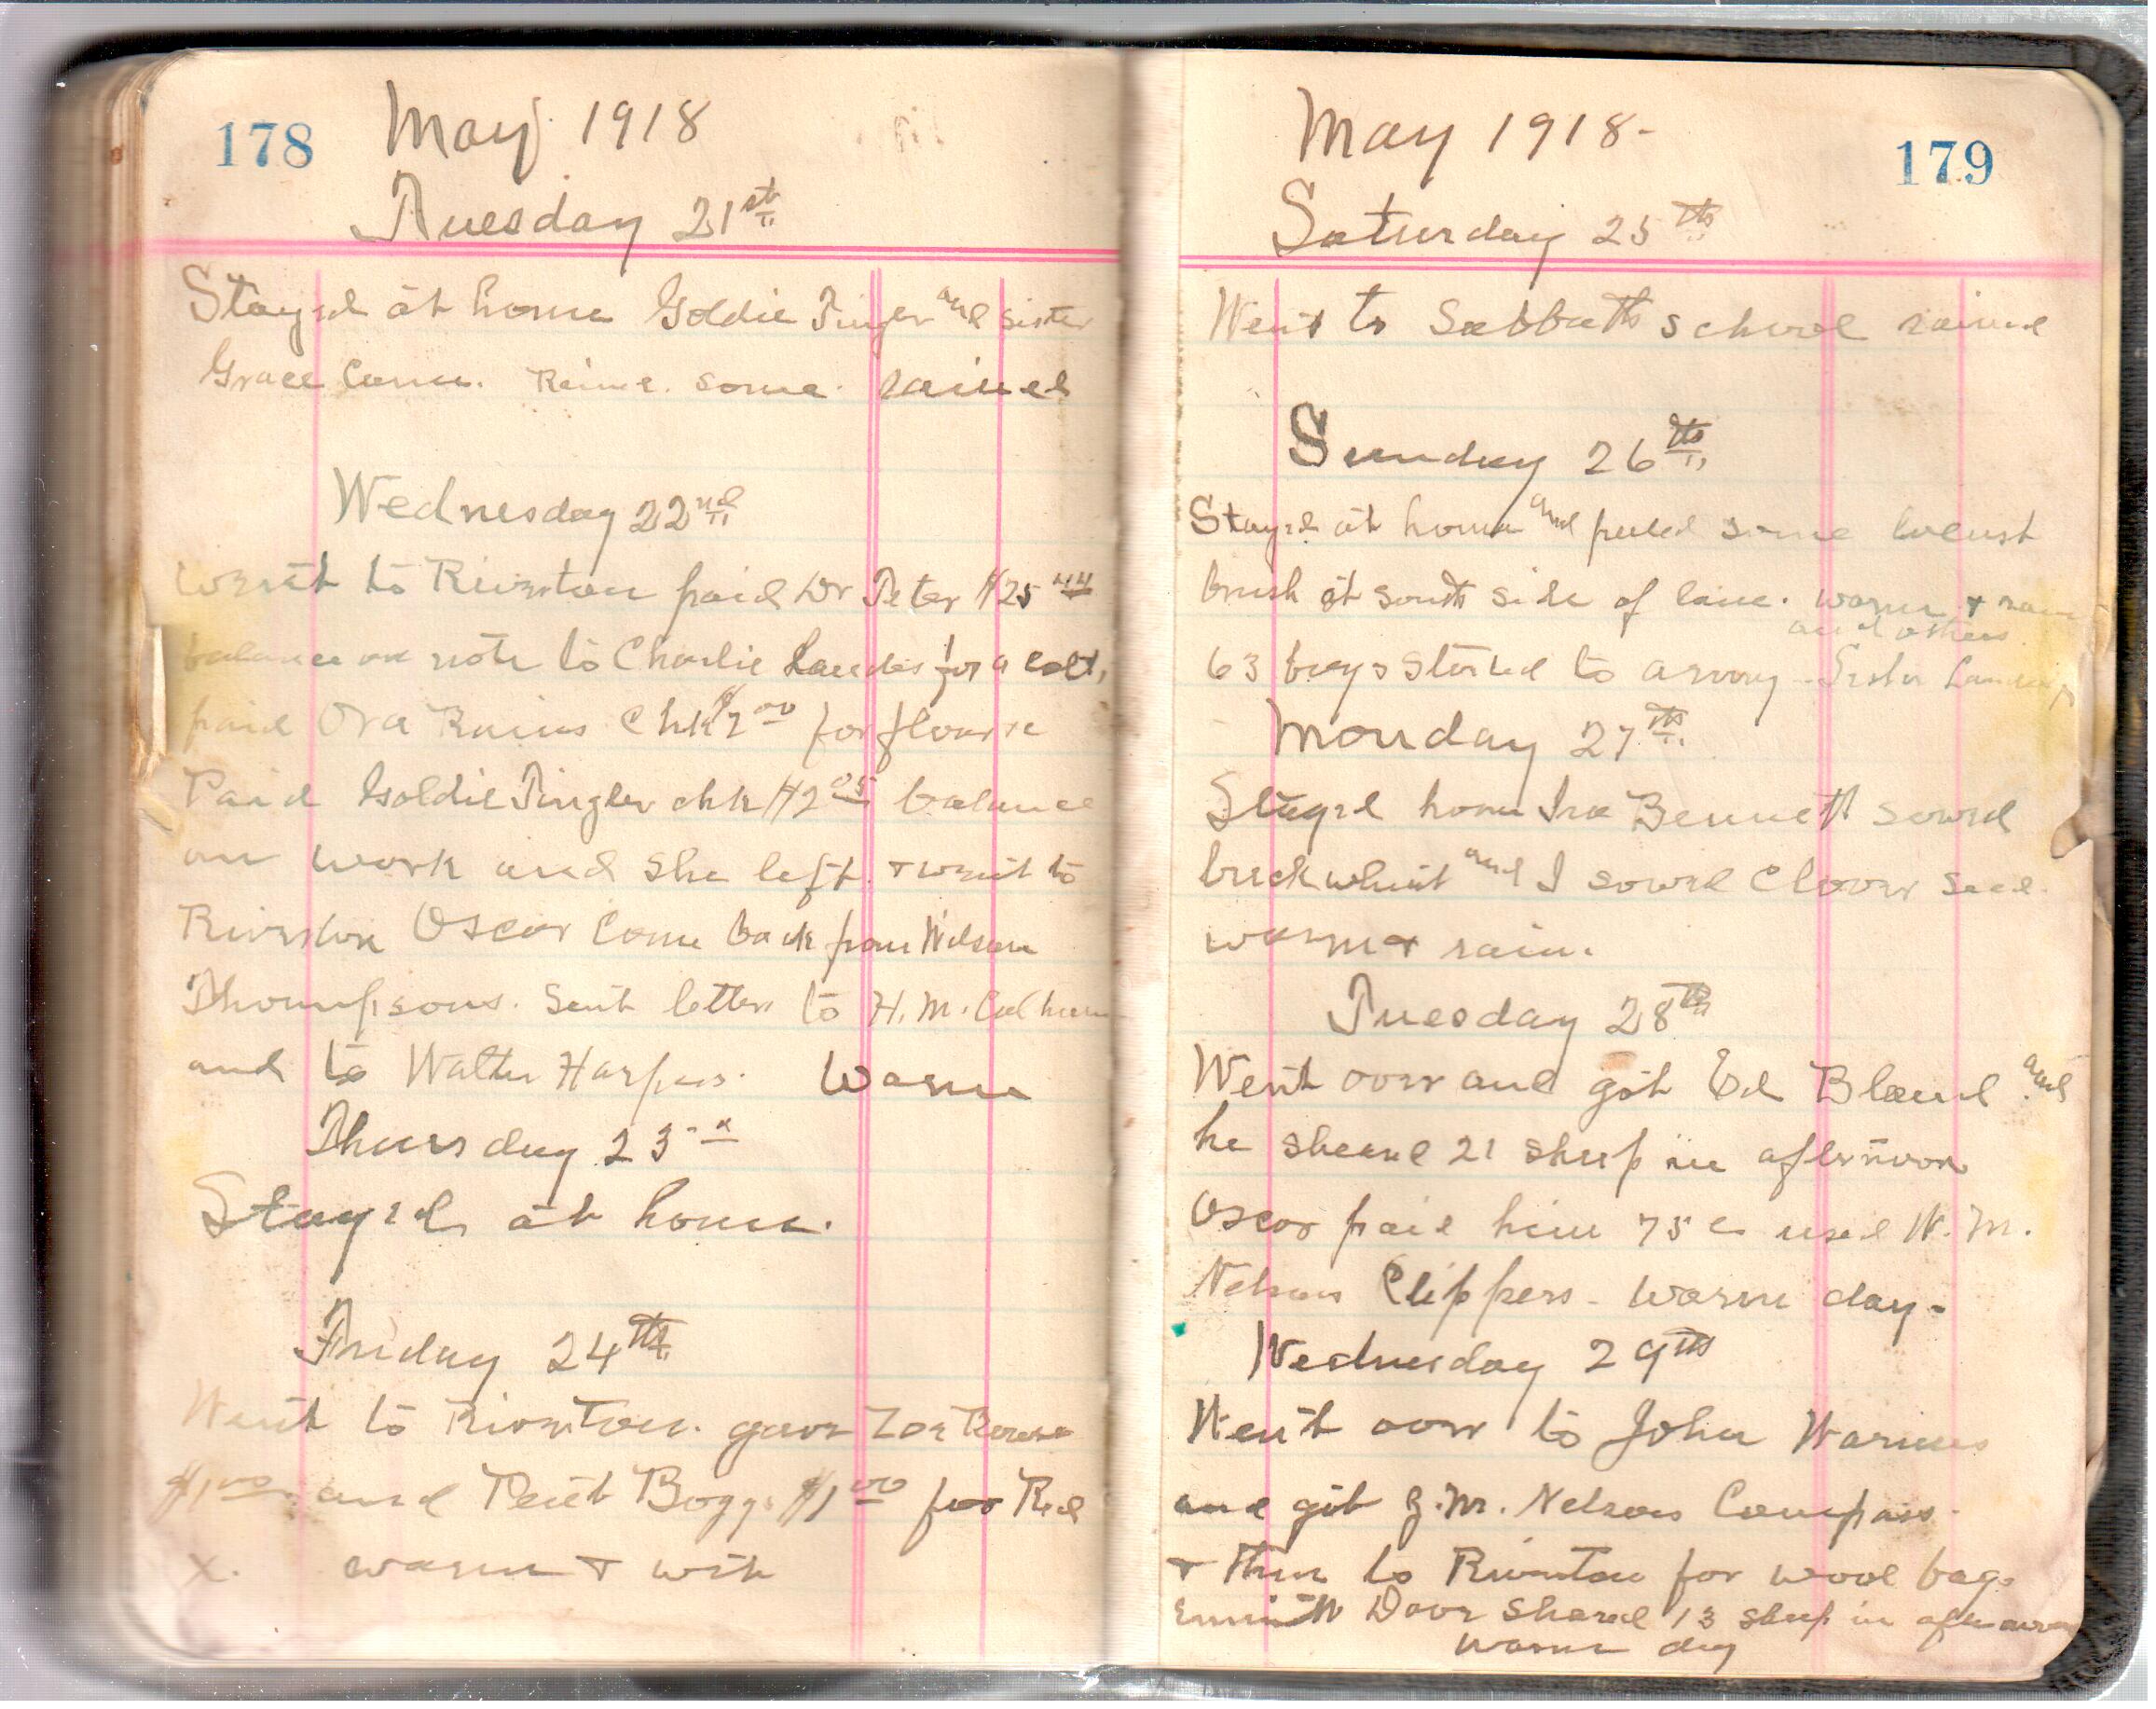 178 May 1918
Tuesday 21st
Stayed at home Goldie Tingler and sister
Grace Came. some rained
Wednesday 22nd
Went to Riverton paid Dr Peter $25 44
balance on note to Charlie Landes for a colt,
paid Ora Rains Chk $2 00 for flour
Paid Goldie Tingler chk $2 05 balance
on work and she left & went to
Riverton Oscar Come back from Wilson
Thompsons. Sent letter to H. M. Calhoun
and to Walter Harper. Warm
Thursday 23rd
Stayed at home.
Friday 24th
Went to Riverton. gave
$1 00 and Boggs $1 00 for Red
X. warm & wet
May 1918- 179
Saturday 25th
Went to Sabbath school rained
Sunday 26th
Stayed at home and peeled some locust
brush at south side of lane. warm & rain
and others
63 boys started to army - Lester
Monday 27th.
Stayed home Ira Bennett sowed
buckwheat and I sowed Clover seed.
warm & rain.
Tuesday 28th
Went over and got Ed Bland and
he sheared 21 sheep in afternoon
Oscar paid him 75 c used W. M.
Nelsons Clippers - Warm day -
Wednesday 29th
Went over to John Warners
and got Z. M. Nelsons Compass.
& then to Riverton for wool bags
Dove Shared 13 sheep in afternoon
warm day